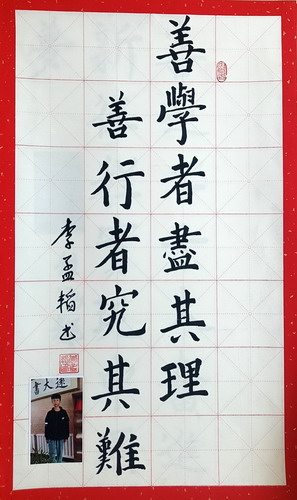 善學者盡其理
善行者究其難
李孟韜书
書大迷